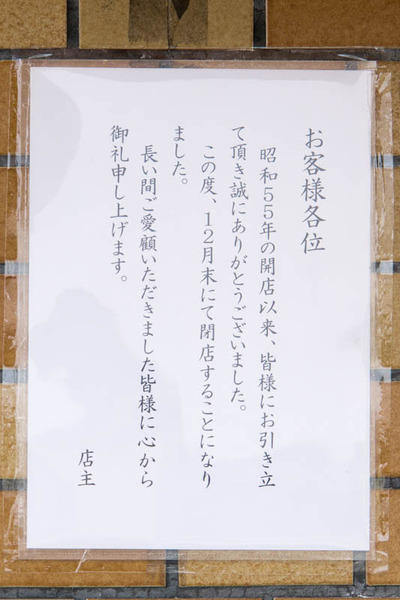 お客様各位
昭和55年の開店以来、皆様にお引き立
て頂き誠にありがとうございました。
この度、12月末にて閉店することになり
ました。
長い間ご愛顧いただきました皆様に心から
御礼申し上げます。
店主